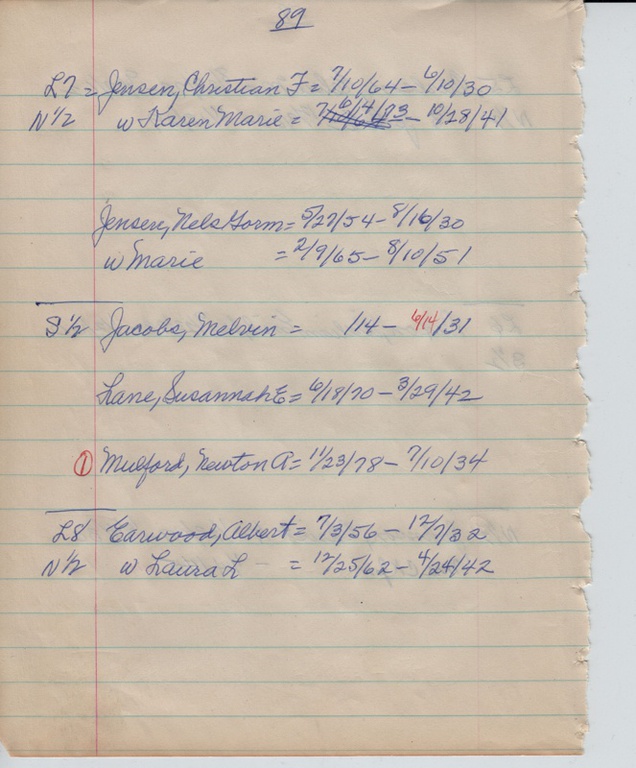 89
L7 = Jensen, Christian F = 7/10/64 - 6/10/30
6/4/73
N 1/2 w Karen Marie = 7/10/64 - 10/28/41
Jensen, Nels Gorm = 5/27/54 - 8/16/30
w Marie = 2/9/65 - 8/10/51
S 1/2 Jacobs, Melvin = /14 - 6/14/31
Lane, Susannah E = 6/18/70 - 3/29/42
1 Mulford, Newton A = 11/23/78 - 7/10/34
L8 Earwood, Albert = 7/3/56 - 12/7/32
N 1/2 w Laura L - = 12/25/62 - 4/24/42